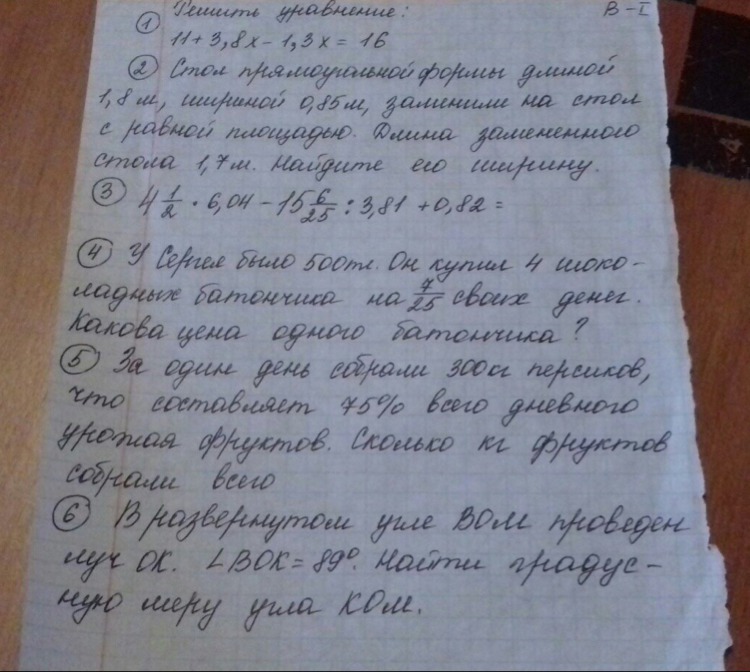 ① Решить уравнение: В-I
11 + 3,8x - 1,3x = 16
② Стол прямоугольной формы длиной
1,8 м, шириной 0,85 м, заменили на стол
с равной площадью. Длина замененного
стола 1,7 м. Найдите его ширину.
③ 4 1/2 · 6,04 - 15 6/25 : 3,81 + 0,82 =
④ У Сергея было 500 тг. Он купил 4 шоко-
ладных батончика на 7/25 своих денег.
Какова цена одного батончика?
⑤ За один день собрали 300 кг персиков,
что составляет 75% всего дневного
урожая фруктов. Сколько кг фруктов
собрали всего
⑥ В развернутом угле ВОМ проведен
луч ОК. ∠ВОК = 89°. Найти градус-
ную меру угла КОМ.